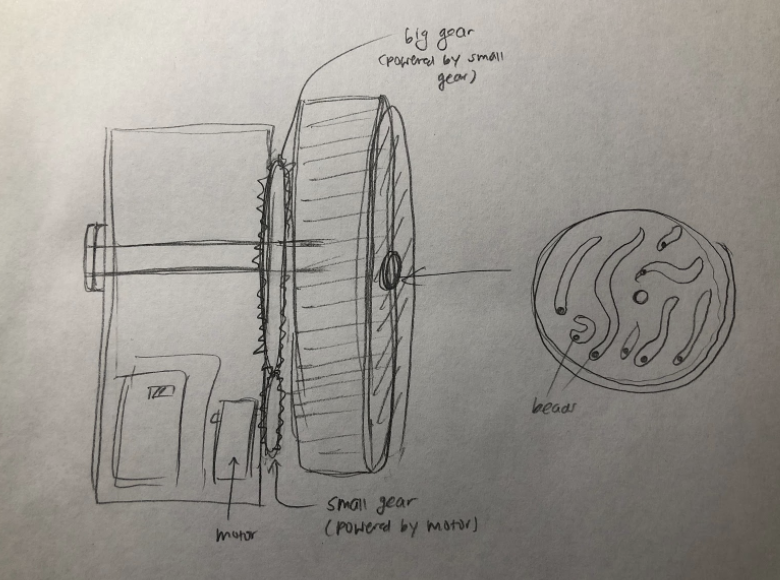 big gear
(powered by small
gear)
beads
small gear
(powered by motor)
motor